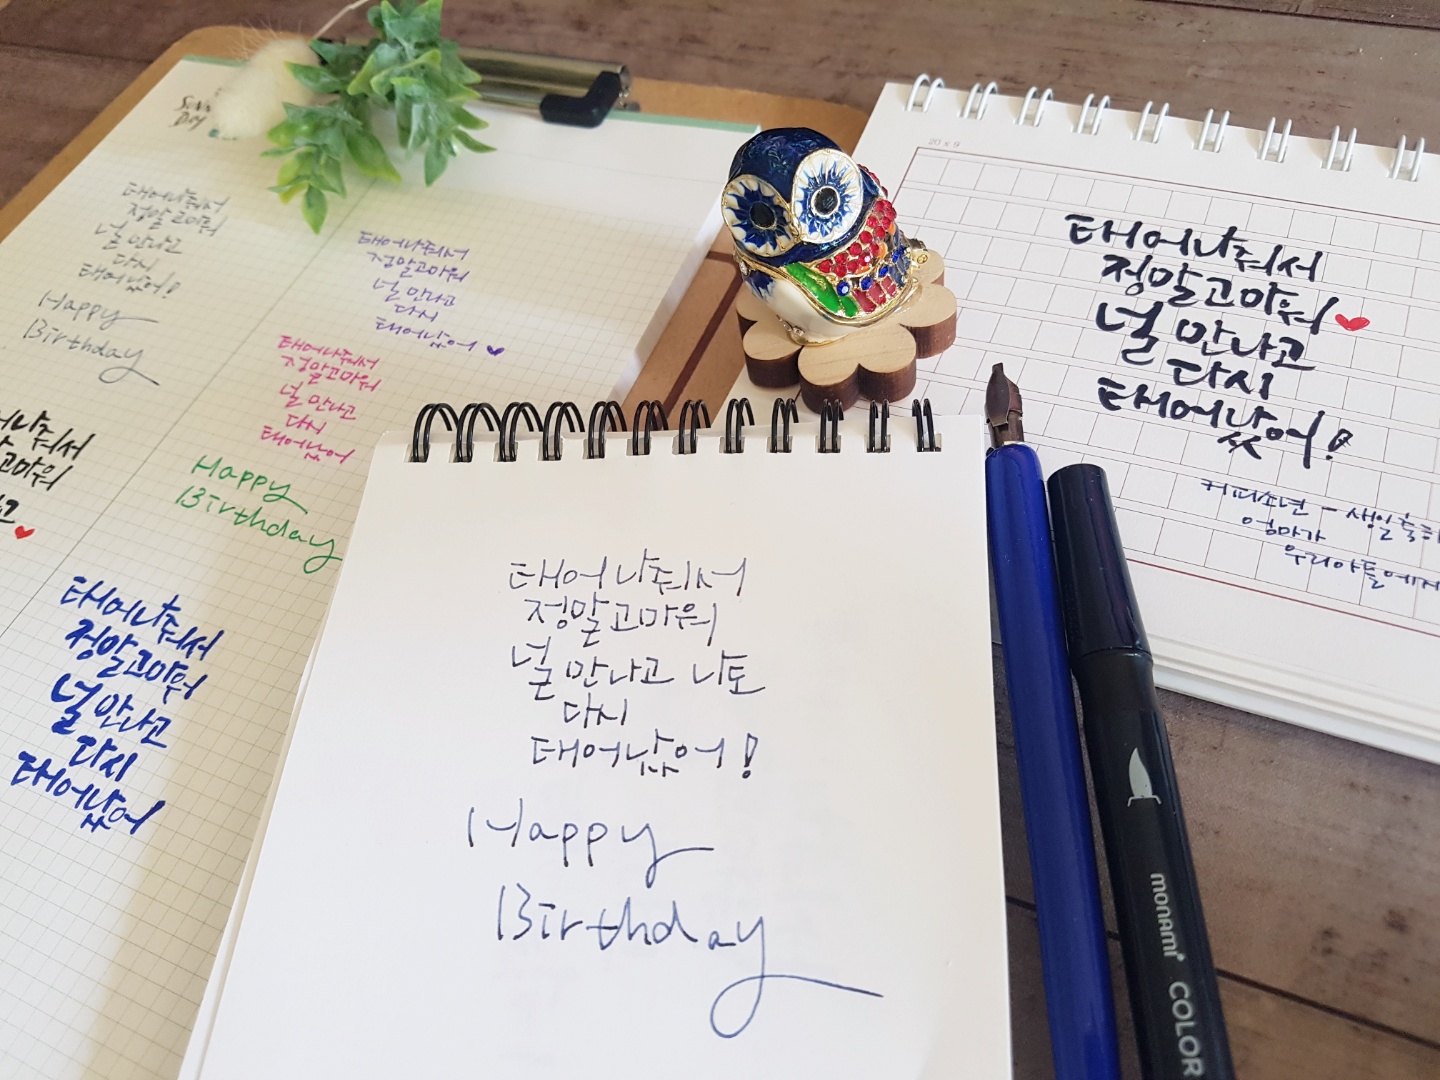 태어나줘서
정말 고마워
널 만나고
다시
태어났어!
Happy
Birthday
태어나줘서
정말고마워
널 만나고
다시
태어났어
태어나줘서
정말고마워
널 만나고
다시
태어났어
Happy
Birthday
태어나줘서
정말고마워
널 만나고
다시
태어났어
태어나줘서
정말고마워
널 만나고 나도
다시
태어났어!
Happy
Birthday
20 x 9
태어나줘서
정말고마워
널 만나고
다시
태어났어!
커피소년 - 생일축하
엄마가
우리아들에게
monami COLOR